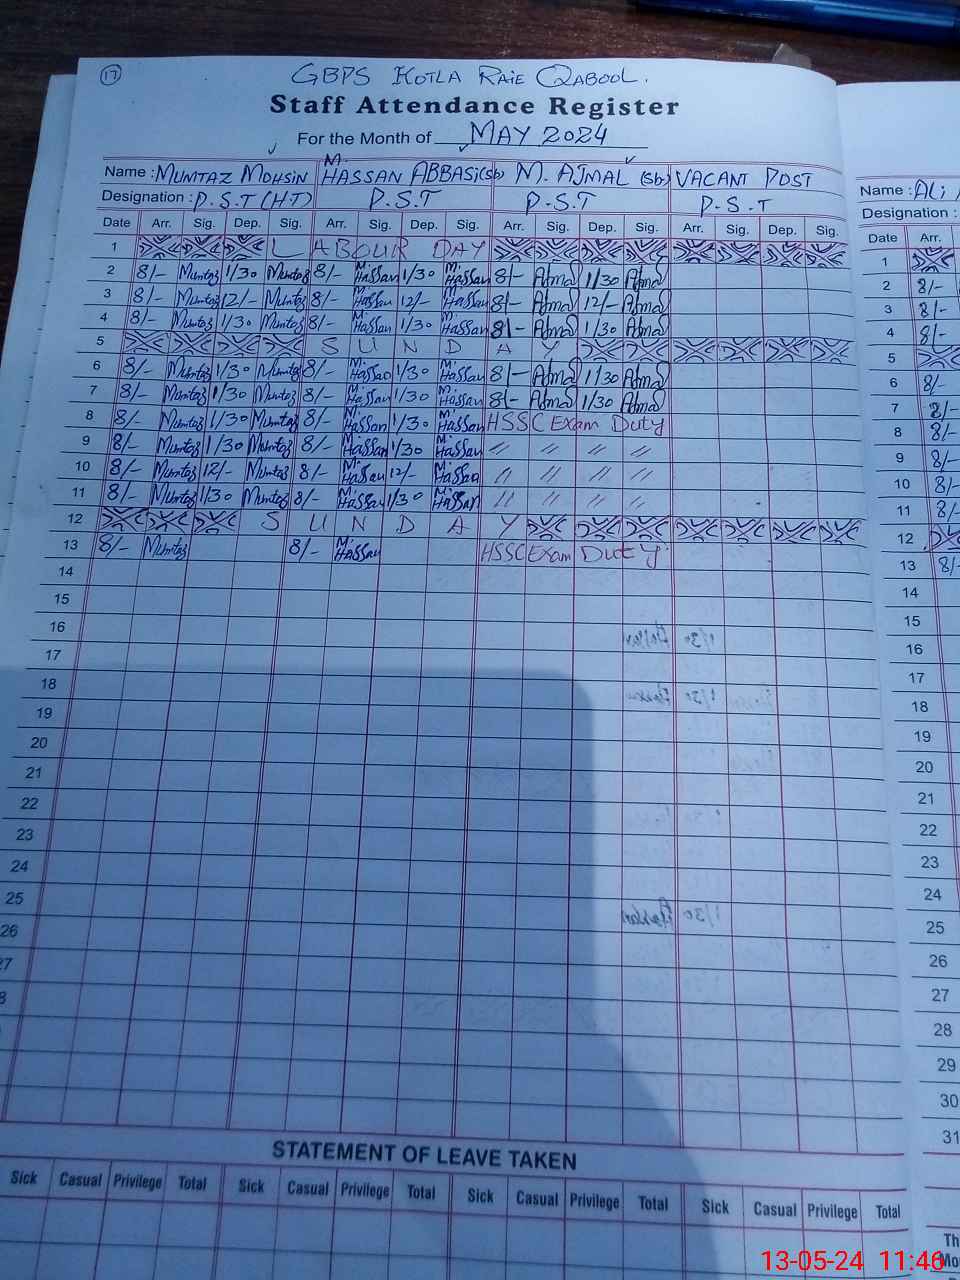 17
GBPS KOTLA RAIE QABOOL.
Staff Attendance Register
For the Month of MAY 2024
Name : MUMTAZ MOHSIN M. HASSAN ABBASI (Sb) M. AJMAL (Sb) VACANT POST
Designation : P.S.T (H.T) P.S.T P.S.T P.S.T
Date Arr. Sig. Dep. Sig. Arr. Sig. Dep. Sig. Arr. Sig. Dep. Sig. Arr. Sig. Dep. Sig.
1 LABOUR DAY
2 8/- Mumtaz 1/30 Mumtaz 8/- M. Hassan 1/30 M. Hassan 8/- Ajmal 1/30 Ajmal
3 8/- Mumtaz 12/- Mumtaz 8/- M. Hassan 12/- M. Hassan 8/- Ajmal 12/- Ajmal
4 8/- Mumtaz 1/30 Mumtaz 8/- M. Hassan 1/30 M. Hassan 8/- Ajmal 1/30 Ajmal
5 SUNDAY
6 8/- Mumtaz 1/30 Mumtaz 8/- M. Hassan 1/30 M. Hassan 8/- Ajmal 1/30 Ajmal
7 8/- Mumtaz 1/30 Mumtaz 8/- M. Hassan 1/30 M. Hassan 8/- Ajmal 1/30 Ajmal
8 8/- Mumtaz 1/30 Mumtaz 8/- M. Hassan 1/30 M. Hassan HSSC Exam Duty
9 8/- Mumtaz 1/30 Mumtaz 8/- M. Hassan 1/30 M. Hassan // // // //
10 8/- Mumtaz 12/- Mumtaz 8/- M. Hassan 12/- M. Hassan // // // //
11 8/- Mumtaz 1/30 Mumtaz 8/- M. Hassan 1/30 M. Hassan // // // //
12 SUNDAY
13 8/- Mumtaz 8/- M. Hassan HSSC Exam Duty
14
15
16
17
18
19
20
21
22
23
24
25
26
27
8
STATEMENT OF LEAVE TAKEN
Sick Casual Privilege Total Sick Casual Privilege Total Sick Casual Privilege Total Sick Casual Privilege Total
Name : ALI
Designation :
Date Arr.
1
2 8/-
3 8/-
4 8/-
5
6 8/-
7 8/-
8 8/-
9 8/-
10 8/-
11 8/-
12
13 8/-
14
15
16
17
18
19
20
21
22
23
24
25
26
27
28
29
30
31
Th
Mo
13-05-24 11:46